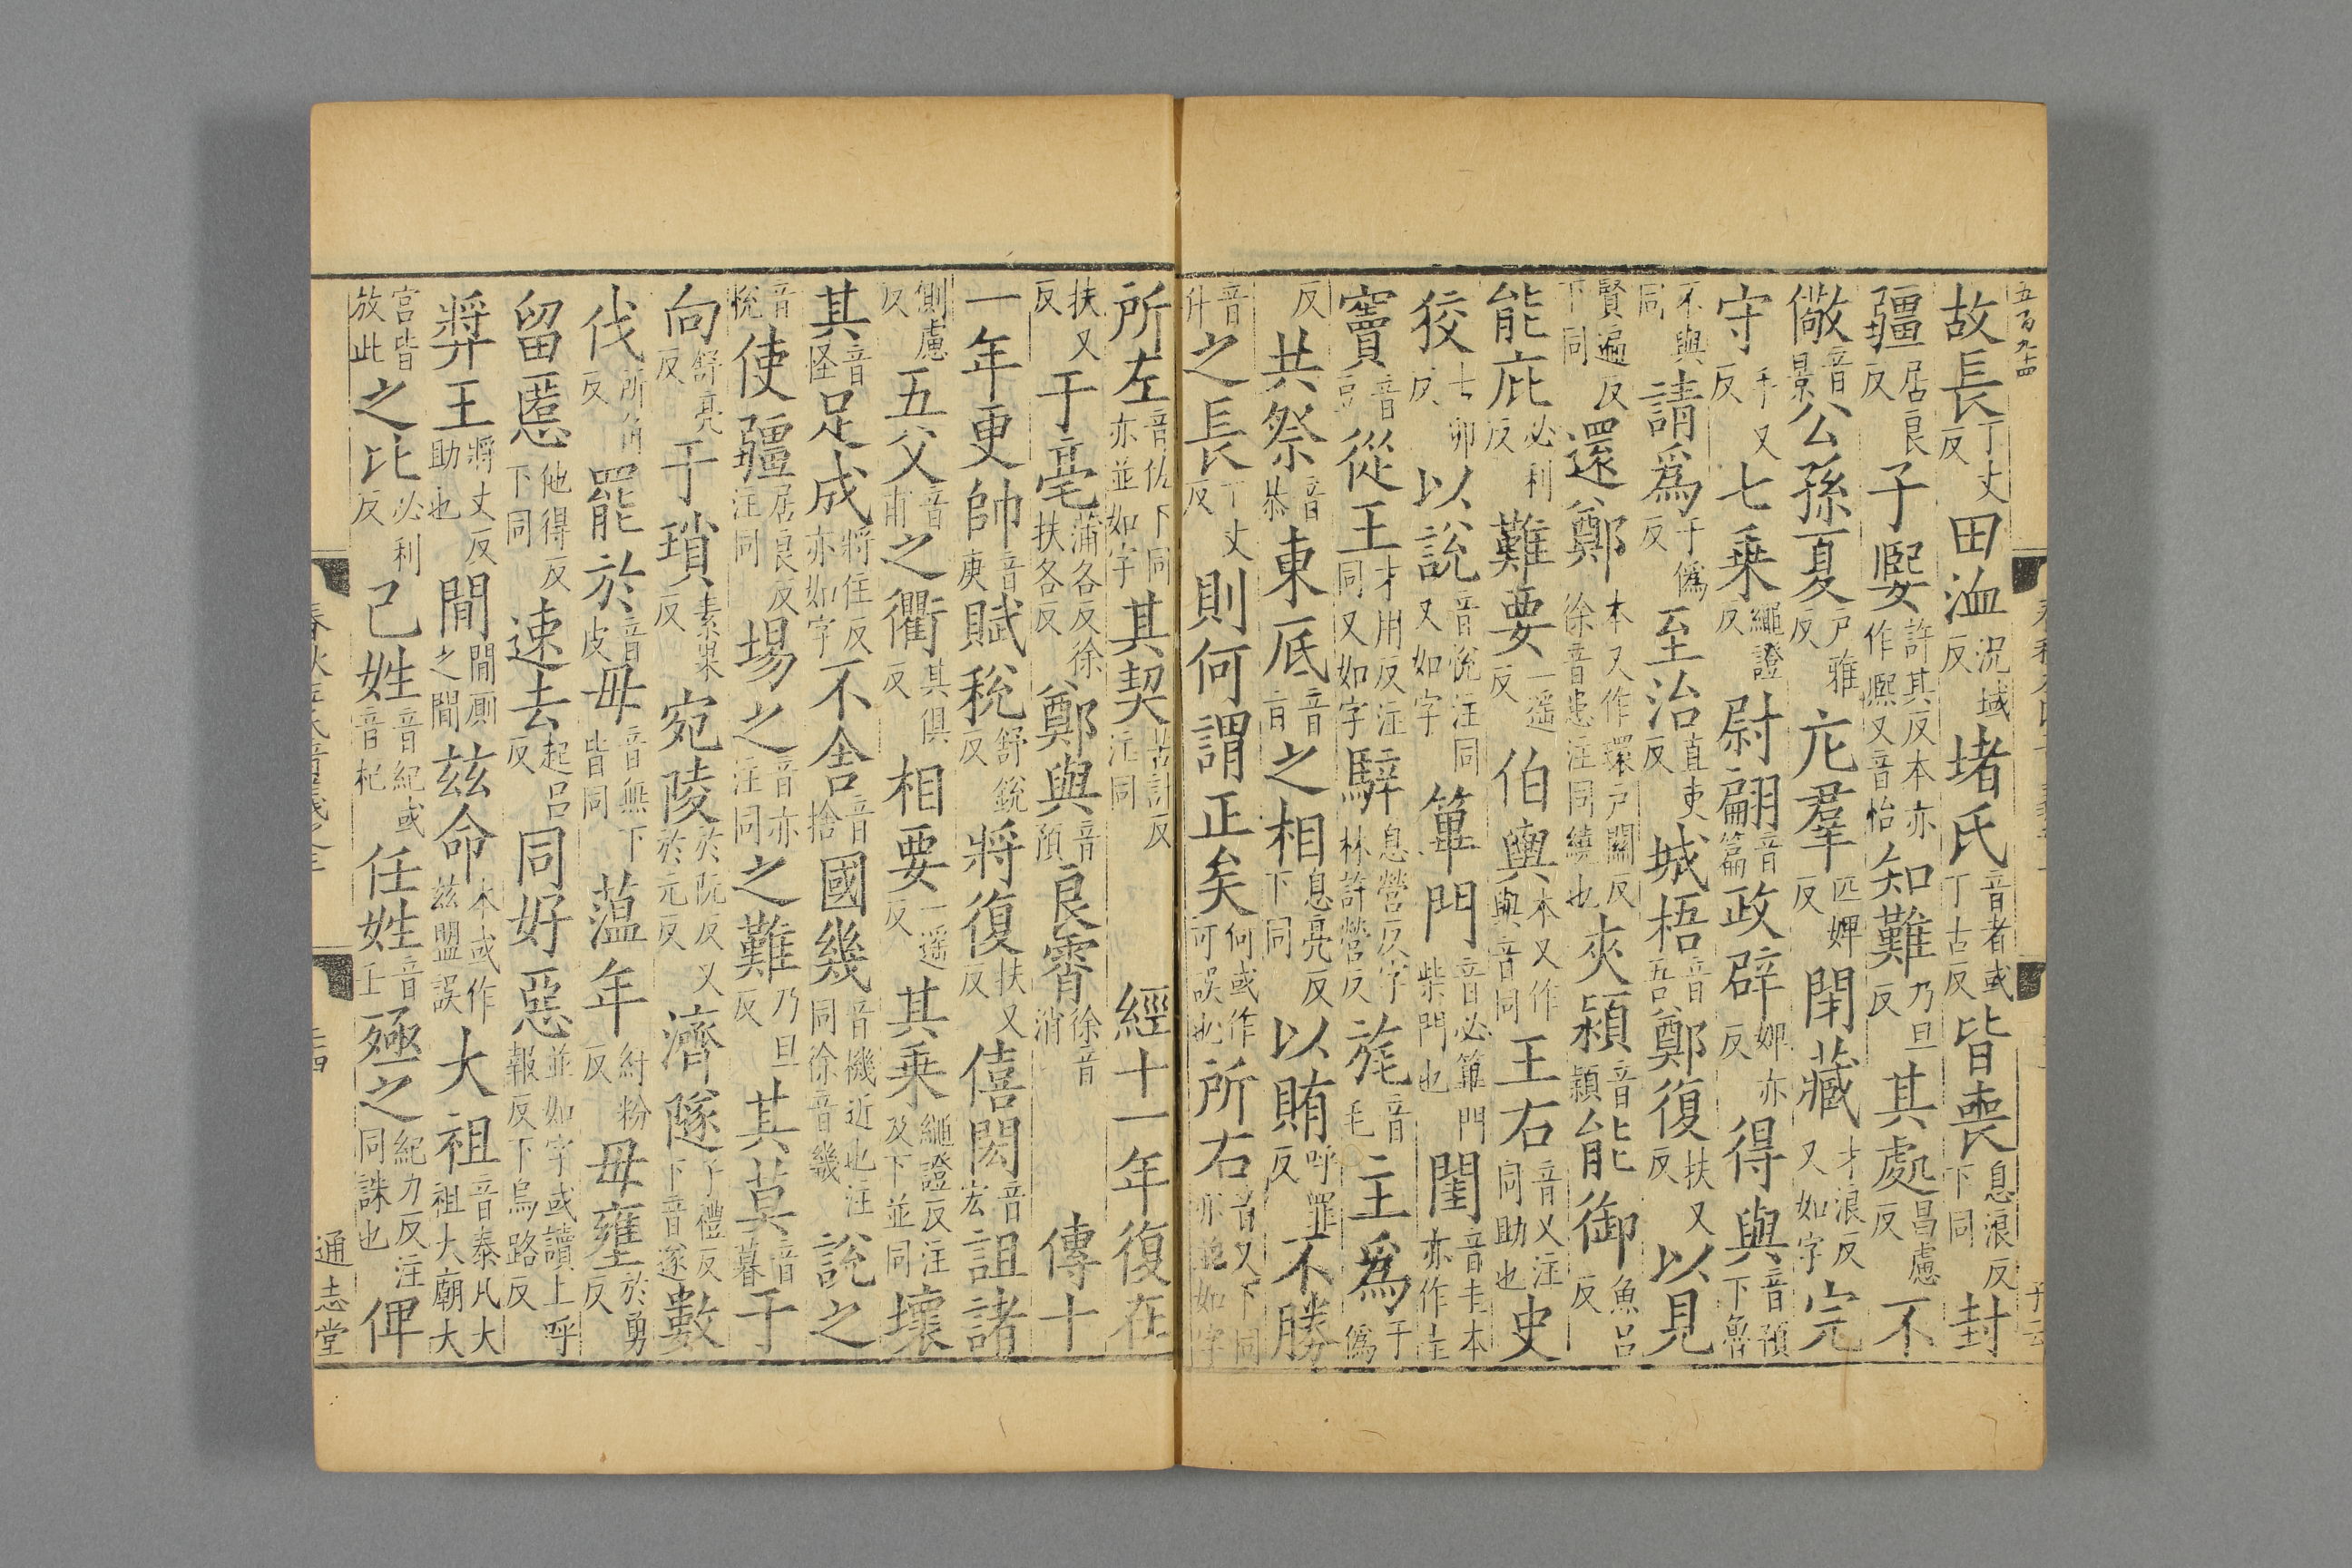 五百九十四
故長丁丈反田洫況域反堵氏音者或丁古反皆喪息浪反下同封
疆居良反子嬰許其反本亦作熙又音怡知難乃旦反其處昌慮反不
儆音景公孫夏戶雅反庀羣匹婢反閉藏才浪反又如字完
守手又反七乗繩證反尉翩音篇政辟婢亦反得與音預下魯
不與同請爲于僞反至治直吏反城梧音吾鄭復扶又反以見
賢遍反下同還鄭本又作環戶關反徐音患注同繞也夾潁音潁能御魚呂反
能庇必利反難要一遥反伯輿本又作與音同王右音又注同助也史
狡古卯反以說音悅注同又如字篳門音必篳門柴門也閨音圭本亦作圭
竇音豆從王才用反注同又如字騂息營反字林許營反旄音毛主爲于僞
反共祭音恭東厎音旨之相息亮反下同以賄呼罪反不勝
音升之長丁丈反則何謂正矣何或作可誤也所右音又下同亦並如字
所左音佐下同亦並如字其契苦計反注同 經十一年復在
扶又反于亳蒲各反徐扶各反鄭與音預良霄徐音消 傳十
一年更帥音庚賦稅舒銳反將復扶又反僖閎音宏詛諸
側慮反五父音甫之衢其俱反相要一遥反其乗繩證反注及下並同壞
其音怪足成將住反亦如字不舍音捨國幾音機近也注同徐音畿說之
音悅使疆居良反注同場之音亦注同之難乃旦反其莫音暮于
向舒亮反于瑣素果反宛陵於阮反又於元反濟隧子禮反下音遂數
伐所角反罷於音皮毋音無下皆同薀年紆粉反毋壅於勇反
留慝他得反下同速去起呂反同好惡並如字或讀上呼報反下烏路反
奬王將丈反助也間間廁之間兹命本或作兹盟誤大祖音泰凡大祖大廟大
宮皆放此之比必利反己姓音紀或音杞任姓音壬殛之紀力反注同誅也俾
通志堂